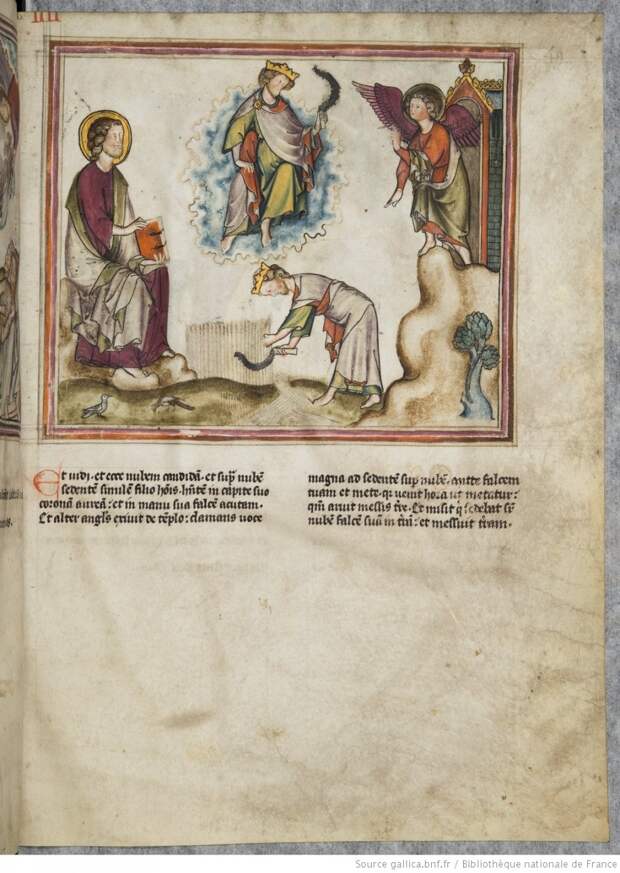 IIII
Et uidi. et ecce nubem candidā. et sup̄ nubē
sedentē similem filio hōis. hn̄tē in capite suo
coronā aureā: et in manu sua falcē acutam.
Et alter angl̄s exiuit de tēplo: clamans uoce
magna ad sedentē sup nubē. mitte falcem
tuam et mete. qr uenit hora ut metatur:
qm̄ aruit messis tr̄e. Et misit q sedebat sr̄
nubē falcē suā in tr̄m: et messuit tr̄am.
Source gallica.bnf.fr / Bibliothèque nationale de France